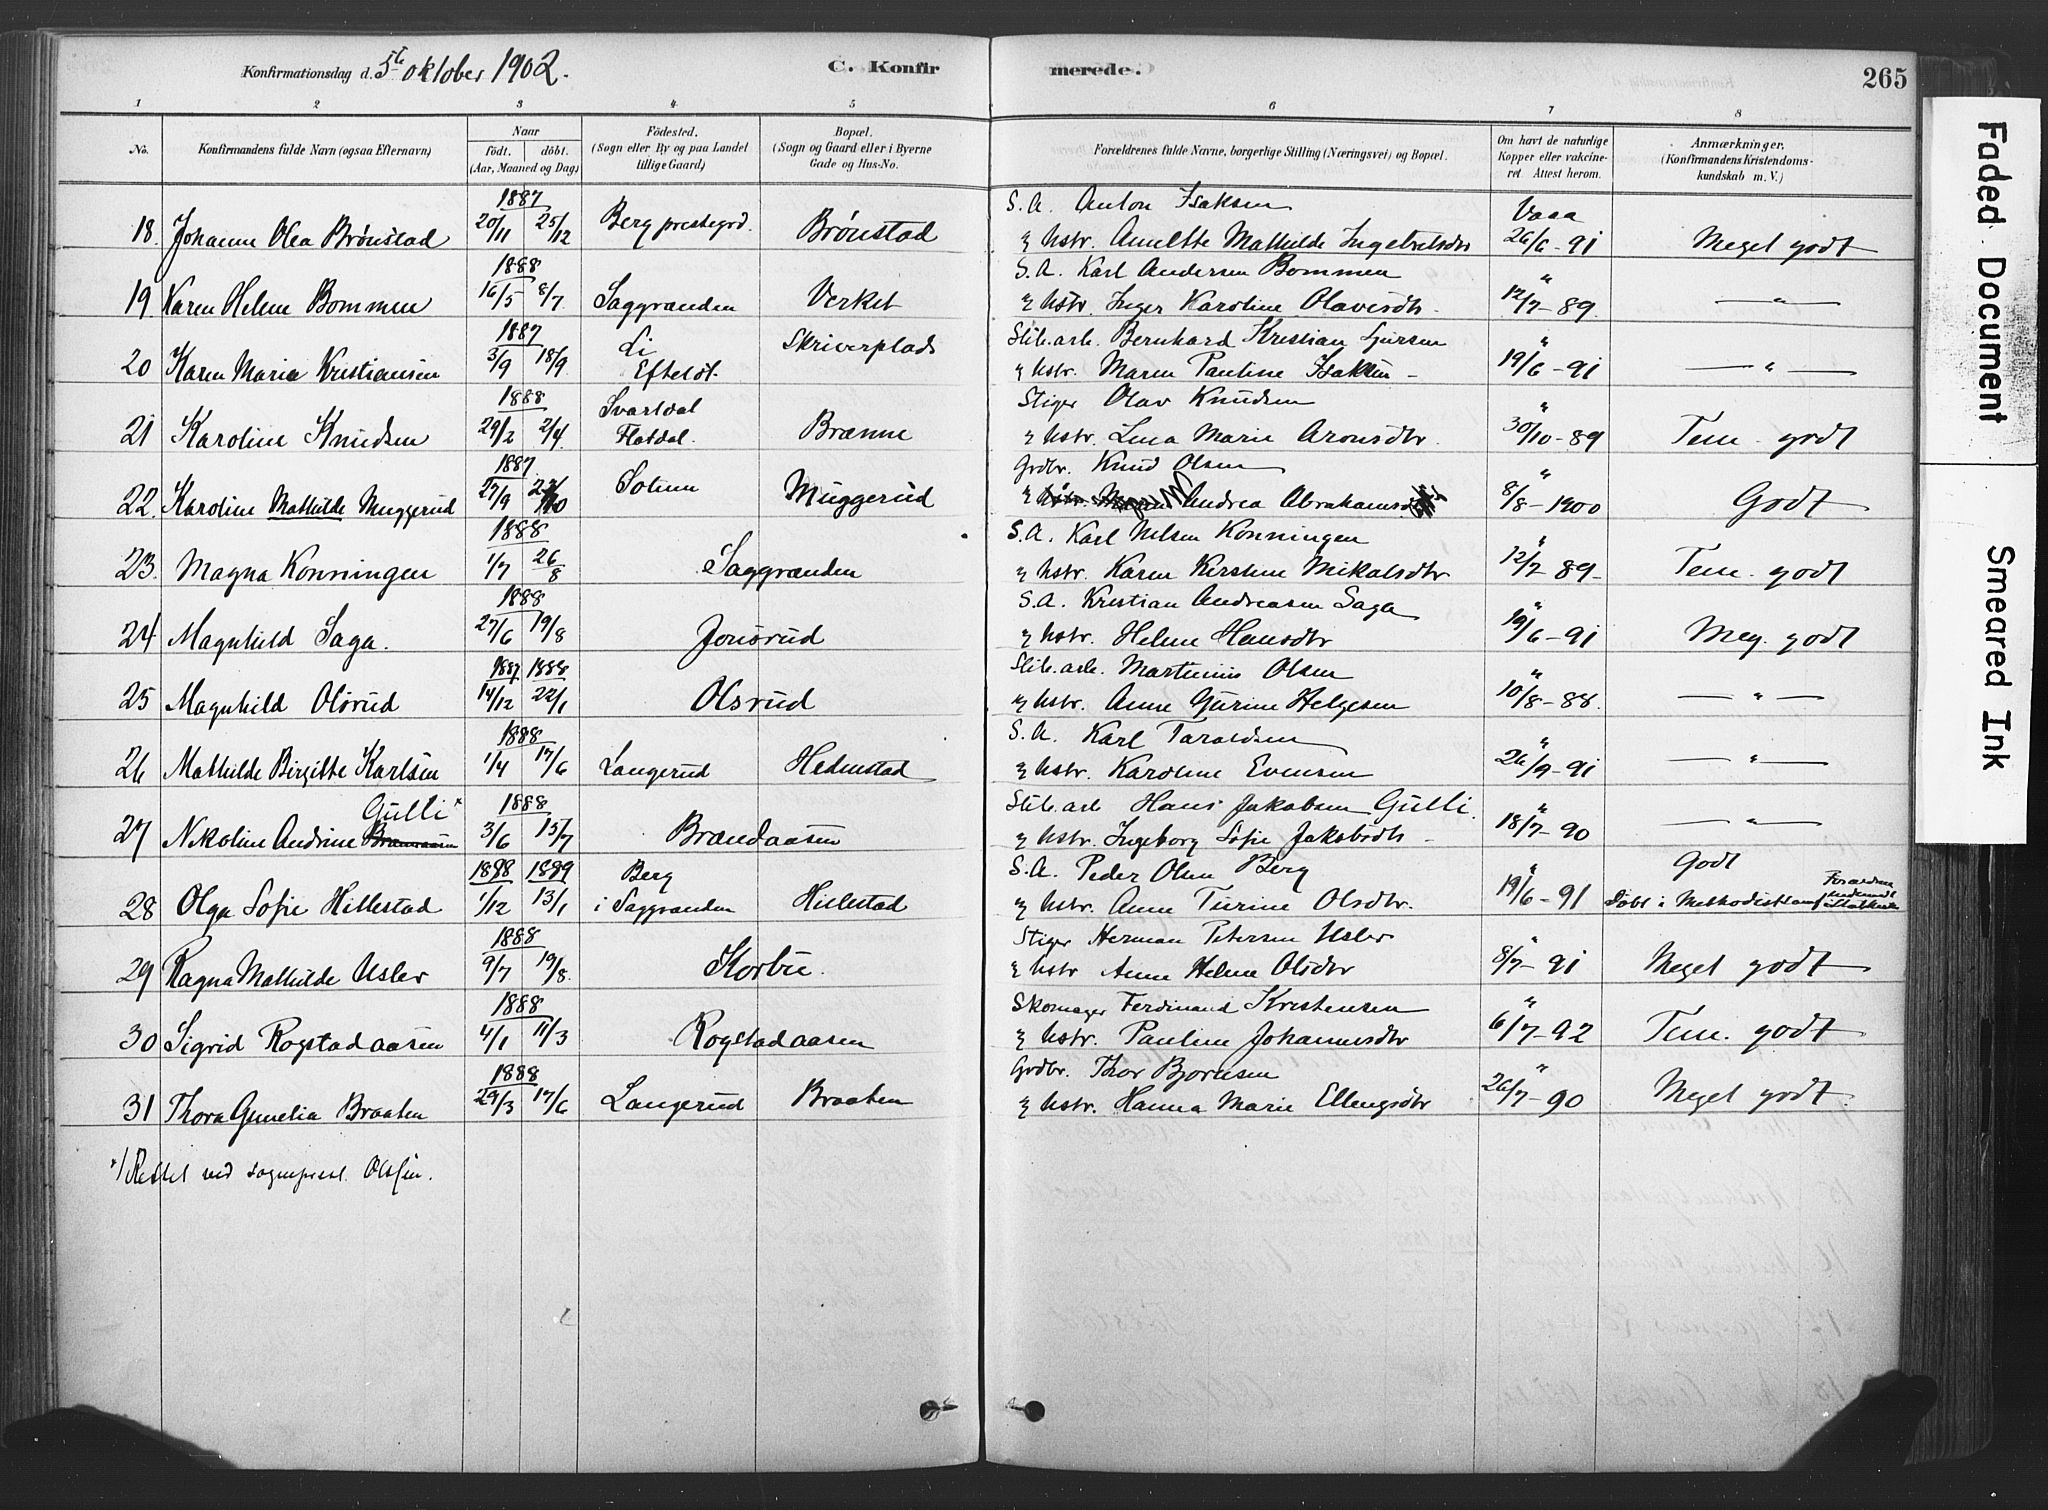 Konfirmationsdag d. 5te oktober 1902.
C. Konfirmerede.
265
1 2 3 4 5 6 7 8
No.
Konfirmandens fulde Navn (ogsaa Efternavn)
Naar
født. døbt.
(Aar, Maaned og Dag)
Fødested.
(Sogn eller By og paa Landet
tillige Gaard)
Bopæl.
(Sogn og Gaard eller i Byerne
Gade og Hus-No.
Forældrenes fulde Navne, borgerlige Stilling (Næringsvei) og Bopæl.
Om havt de naturlige
Kopper eller vakcine-
ret. Attest herom.
Anmærkninger.
(Konfirmandens Kristendoms-
kundskab m. V.)
1887 S. A. Anton Isaksen Vacc
18. Johanne Olea Brønstad 20/11 25/12 Berg prestegrd. Brønstad & hstr. Anette Mathilde Ingebretsdtr 26/6-91 Meget godt
1888 S. A. Karl Andersen Bommen "
19 Karen Helene Bommen 16/5 8/7. Saggrenden Verket & hstr. Inger Karoline Olavesdtr. 12/7-89. — " —
1887 Li Skriverplads Slib. arb. Bernhard Kristian Sjursen "
20 Karen Marie Kristiansen 3/9 18/9 Efteløt. & hstr. Maren Pauline Isaksen - 19/6-91 — " —
1888 Svartdal Stiger Olav Knudsen "
21 Karoline Knudsen 29/2 2/4. Flatdal. Brænne & hstr. Lena Marie Aronsdtr. 30/10-89 Tem. godt
1887 Grdbr. Knud Olsen "
22. Karoline Mathilde Muggerud 27/9 Solum Muggerud & Andrea Abrahams 8/8-1900 Godt
1888 S. A. Karl Nilsen Konningen "
23. Magna Konningen 1/7 26/8 Saggrenden & hstr. Karen Kirstine Mikalsdtr 12/7 89- Tem. godt
1888 S. A. Kristian Andreasen Saga "
24 Magnhild Saga. 27/6 19/8 Jonsrud & hstr. Helene Hansdtr 19/6-91 Meg. godt
1887. 1888 Slib. arb. Martinius Olsen "
25 Magnhild Olsrud 14/12 22/1 Olsrud & hstr. Anne Gurine Helgesen 10/8-88. — " —
1888 S. A. Karl Taraldsen "
26 Mathilde Birgitte Karlsen 1/4 17/6 Langerud Hedenstad & hstr. Karoline Evensen 26/9-91 — " —
Gulli x 1888 Slib. arb Hans Jakobsen Gulli. "
27 Nikoline Andrine Brænaasen 3/6 15/7 Brændaasen & hstr. Ingeborg Sofie Jakobsdtr - 18/7-90 — " —
1888 1889 Berg S. A. Peder Olsen Berg " Godt
28 Olga Sofie Hillestad 1/12 13/1 i Saggrenden Hillestad & hstr. Anne Turine Olsdtr. 19/6-91 Døbt i Methodistsamf. Forældrene
1888 Stiger Herman Petersen Usler "
29 Ragna Mathilde Usler 9/7 19/8. Korbu. & hstr Anne Helene Olsdtr 8/7-91 Meget godt
1888 Skomager Ferdinand Kristensen "
30 Sigrid Rogstadaasen 4/1 11/3 Rogstadaasen & hstr. Pauline Johannesdtr 6/7-92 Tem. godt
1888 Grdbr. Thor Bjørnsen "
31 Thora Gunelia Braaten 29/3 17/6 Langerud Braaten & hstr. Hanna Marie Ellengsdtr 26/7-90 Meget godt.
x/ Rettet ved sogneprest Olssøn.
Faded Document
Smeared Ink